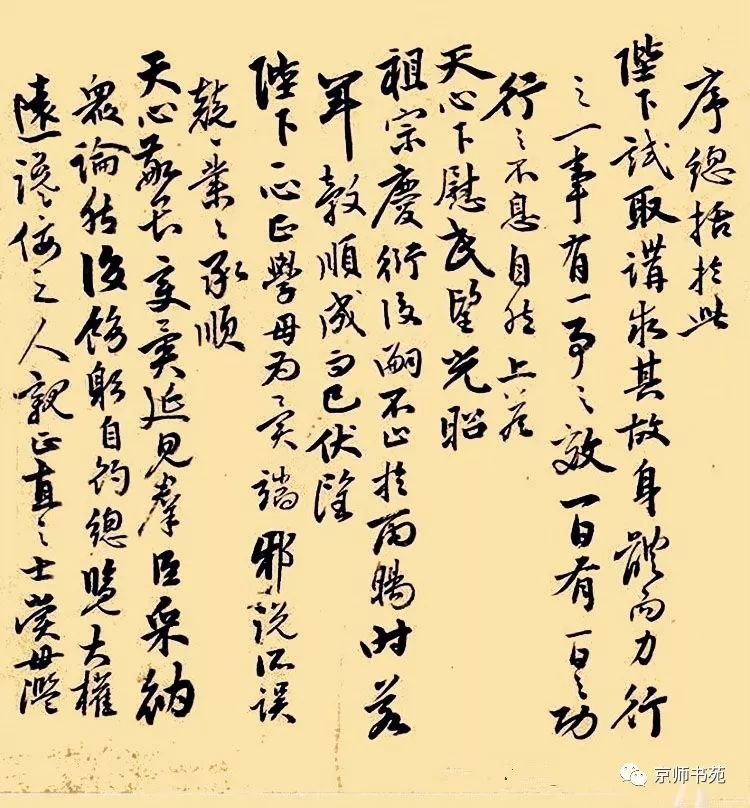 序總括於此
陛下試取講求其故身體而力行
之一事有一事之效一日有一日之功
行之不息自然上答
天心下慰民望光昭
祖宗慶衍後嗣不止於雨暘時若
年穀順成而已伏望
陛下一心正學毋為異端邪說所誤
兢兢業業承順
天心敬畏變異延見羣臣采納
眾論然後飭躬自約總覽大權
遠讒佞之人親正直之士賞毋濫
京师书苑